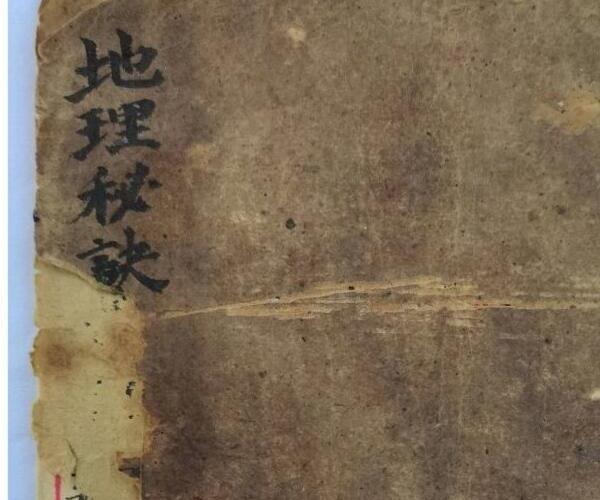 地理秘訣